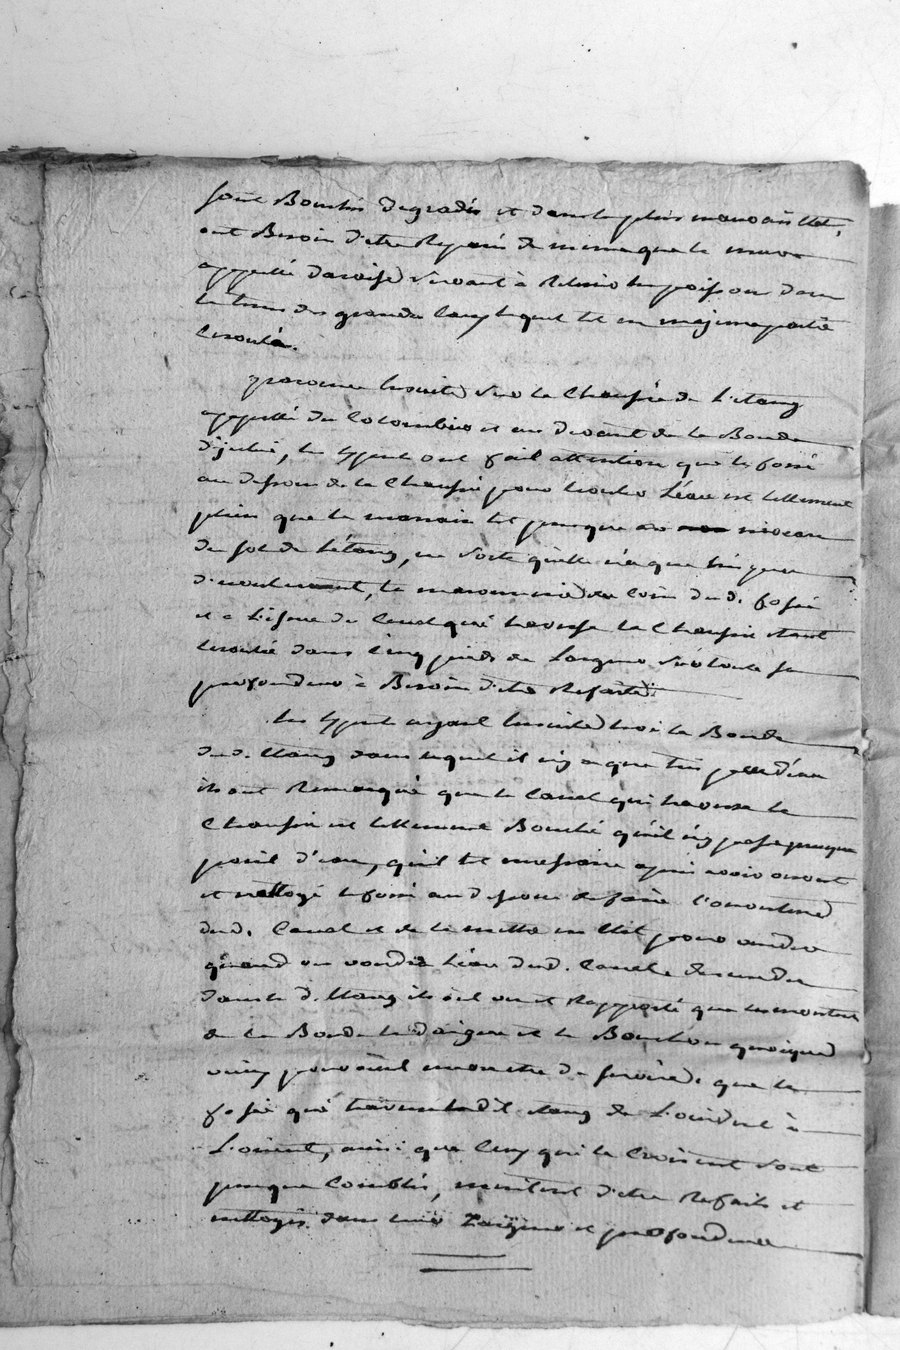 sont Bouchés degradés et dans le plus mauvais Etat,
ont Besoin d'etre Reparés de meme que le mur
appellé servant à Retenir le poisson dans
le tems des grandes eaux lequel est en majeure partie
ecroulé.
parvenu ensuite sur la Chaussée de L'etang
appellé du Colombier et au devant de la Bonde
d'jcelui, les Experts ont fait attention que le fossé
au dessous de la Chaussée pour écouler L'eau est tellement
plein que le terrain est presque au niveau
du sol de L'étang, en sorte qu'elle n'a que tres peu
d'ecoulement, la maconnerie du Coin dud. fossé
et a L'issue du Canal qui traverse la Chaussée etant
ecroulée dans cinq pieds de Largeur sur toute sa
profondeur à Besoin d'etre Refaite.
les Experts ayant ensuite la Bonde
dud. Etang dans lequel il n'y a que tres peu d'eau
ils ont Remarqué que le Canal qui traverse la
Chaussée est tellement Bouché qu'il n'y passe presque
point d'eau, qu'il est necessaire apres avoir ouvert
et nettoyé le fossé au dessous de faire l'ouverture
dud. Canal et de le mettre en Etat pour vuider
quand on voudra L'eau dud. Canal descendu
dans le d. Etang ils ont vu et Rapporté que les montans
de la Bonde et le Bouchon quoique
vieux peuvent encore servir. que le
fossé qui traverse led. etang de L'occident à
L'orient, ainsi que ceux qui le Croisent sont
presque Comblés, meritent d'etre Refaits et
nettoyés dans leur Largeur et profondeur